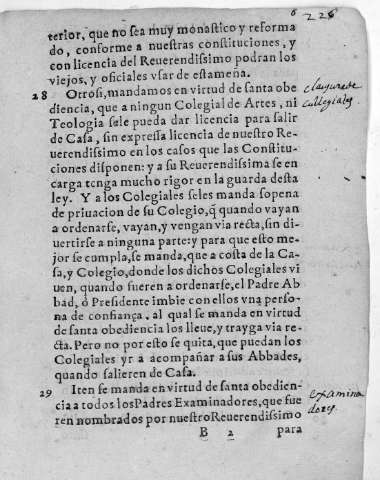 6 226
terior, que no sea muy monastico y reforma
do, conforme a nuestras constituciones, y
con licencia del Reuerendissimo podran los
viejos, y oficiales vsar de estameña.
28 Otrosi, mandamos en virtud de santa obe
diencia, que a ningun Colegial de Artes, ni
Teologia sele pueda dar licencia para salir
de Casa, sin expressa licencia de nuestro Re-
uerendissimo en los casos que las Constitu-
ciones disponen: y a su Reuerendissima se en
carga tenga mucho rigor en la guarda desta
ley. Y a los Colegiales seles manda sopena
de priuacion de su Colegio, q̃ quando vayan
a ordenarse, vayan, y vengan via recta, sin di-
uertirse a ninguna parte: y para que esto me-
jor se cumpla, se manda, que a costa de la Ca-
sa, y Colegio, donde los dichos Colegiales vi
uen, quando fueren a ordenarse, el Padre Ab
bad, ò Presidente imbie con ellos vna perso-
na de confiança, al qual se manda en virtud
de santa obediencia los lleue, y trayga via re-
cta. Pero no por esto se quita, que puedan los
Colegiales yr a acompañar a sus Abbades,
quando salieren de Casa.
29 Iten se manda en virtud de santa obedien-
cia a todos los Padres Examinadores, que fue
ren nombrados por nuestro Reuerendissimo
B 2 para
collegiales
examina
dores